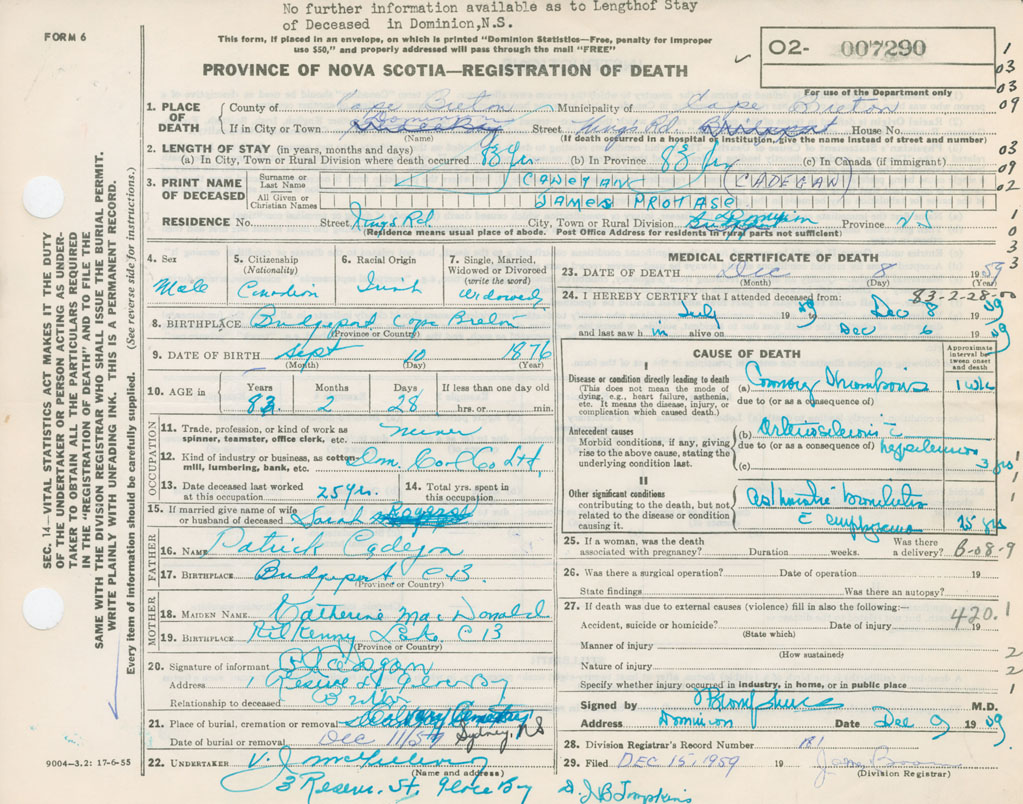 No further information available as to Lengthof Stay
of Deceased in Dominion,N.S.
FORM 6
This form, if placed in an envelope, on which is printed "Dominion Statistics—Free, penalty for improper
use $50," and properly addressed will pass through the mail "FREE"
PROVINCE OF NOVA SCOTIA—REGISTRATION OF DEATH
O2- 007290
For use of the Department only
1
03
03
09
03
09
02
1
0
3
3
1. PLACE OF DEATH
County of Cape Breton Municipality of Cape Breton
If in City or Town Dominion Street King's Rd. House No.
(Name) (If death occurred in a hospital or institution, give the name instead of street and number)
2. LENGTH OF STAY (in years, months and days)
(a) In City, Town or Rural Division where death occurred 83 yrs (b) In Province 83 yrs (c) In Canada (if immigrant)
3. PRINT NAME OF DECEASED
Surname or Last Name CADEGAN (CADEGAW)
All Given or Christian Names JAMES PROTASE
RESIDENCE No. Street King's Rd. City, Town or Rural Division Dominion Province N S
(Residence means usual place of abode. Post Office Address for residents in rural parts not sufficient)
4. Sex Male
5. Citizenship (Nationality) Canadian
6. Racial Origin Irish
7. Single, Married, Widowed or Divorced (write the word) Widowed
8. BIRTHPLACE Bridgeport Cape Breton
(Province or Country)
9. DATE OF BIRTH Sept 10 1876
(Month) (Day) (Year)
10. AGE in Years 83 Months 2 Days 28 If less than one day old hrs. or min.
OCCUPATION
11. Trade, profession, or kind of work as spinner, teamster, office clerk, etc. Miner
12. Kind of industry or business, as cotton-mill, lumbering, bank, etc. Dom. Coal Co Ltd.
13. Date deceased last worked at this occupation 25 yrs.
14. Total yrs. spent in this occupation
15. If married give name of wife or husband of deceased Sarah Rogers
FATHER
16. NAME Patrick Cadegan
17. BIRTHPLACE Bridgeport C B.
(Province or Country)
MOTHER
18. MAIDEN NAME Catherine MacDonald
19. BIRTHPLACE Kilkenny Lake C B
(Province or Country)
20. Signature of informant Cadegan
Address 1 Reserve St Glace Bay
Relationship to deceased
21. Place of burial, cremation or removal Calvary Cemetery
Sydney, NS
Date of burial or removal Dec 11/59
22. UNDERTAKER V. J. McGillivray
(Name and address)
3 Reserve St, Glace Bay
D. J B Tompkins
MEDICAL CERTIFICATE OF DEATH
23. DATE OF DEATH Dec 8 1959
(Month) (Day) (Year)
83-2-28-00
24. I HEREBY CERTIFY that I attended deceased from:
July 1959 Dec 8 1959
and last saw h im alive on Dec 6 1959
CAUSE OF DEATH
Approximate interval between onset and death
I
Disease or condition directly leading to death
(This does not mean the mode of dying, e.g., heart failure, asthenia, etc. It means the disease, injury, or complication which caused death.)
(a) Coronary Thrombosis 1 wk
due to (or as a consequence of)
Antecedent causes
Morbid conditions, if any, giving rise to the above cause, stating the underlying condition last.
(b) Arteriosclerosis c̄
due to (or as a consequence of) hypertension
(c) 3 yrs
II
Other significant conditions
contributing to the death, but not related to the disease or condition causing it.
asthmatic bronchitis
c̄ emphysema 15 yrs
25. If a woman, was the death associated with pregnancy? Duration weeks. Was there a delivery? B-08-9
26. Was there a surgical operation? Date of operation 19
State findings Was there an autopsy?
27. If death was due to external causes (violence) fill in also the following:—
420.1
Accident, suicide or homicide? Date of injury 19
(State which)
Manner of injury
(How sustained)
Nature of injury
Specify whether injury occurred in industry, in home, or in public place
Signed by M.D.
Address Dominion Date Dec 9 1959
28. Division Registrar's Record Number 181
29. Filed DEC 15, 1959 19
(Division Registrar)
SEC. 14—VITAL STATISTICS ACT MAKES IT THE DUTY
OF THE UNDERTAKER OR PERSON ACTING AS UNDER-
TAKER TO OBTAIN ALL THE PARTICULARS REQUIRED
IN THE "REGISTRATION OF DEATH" AND TO FILE THE
SAME WITH THE DIVISION REGISTRAR WHO SHALL ISSUE THE BURIAL PERMIT.
WRITE PLAINLY WITH UNFADING INK. THIS IS A PERMANENT RECORD.
Every item of information should be carefully supplied. (See reverse side for instructions.)
9004-3.2: 17-6-55